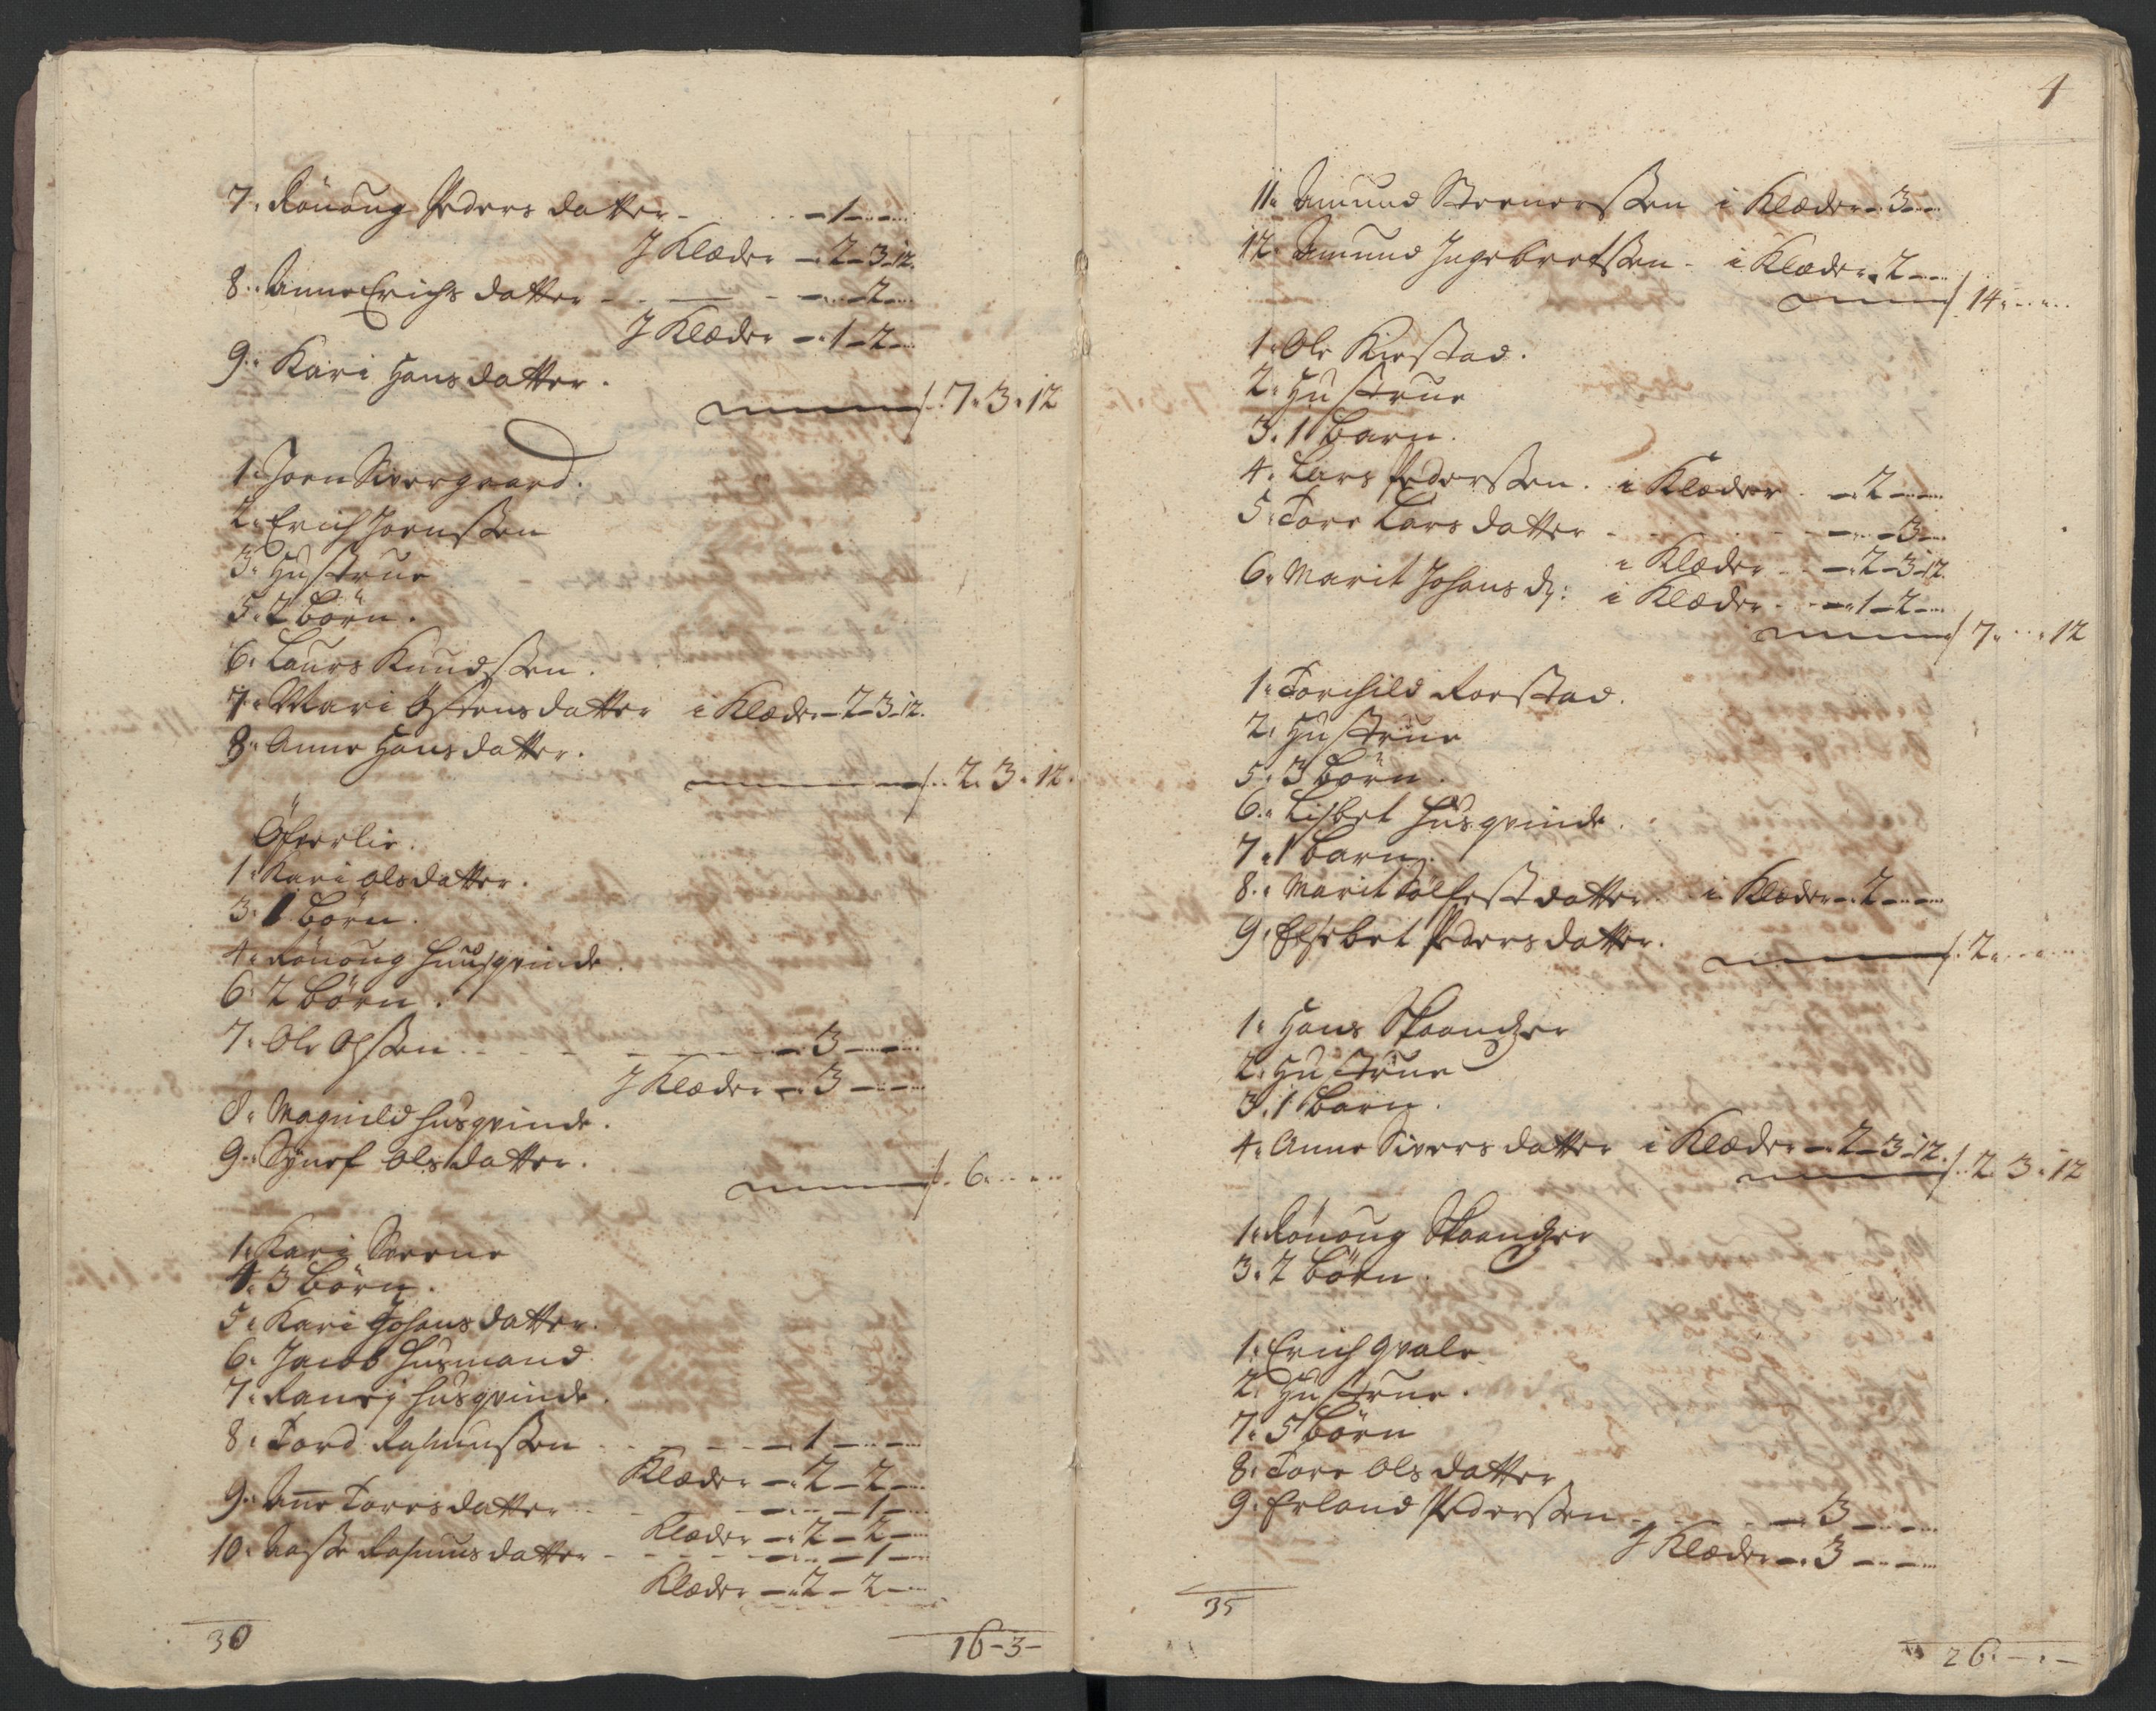 7. Rönoug Peders datter - - 1 - -
J Klæder - 2 - 3 - 12.
8. Anne Erichs datter - - - 2 -
J Klæder - 1 - 2 -
9. Kari Hans datter.
7. 3. 12
1. Joen Sivergaard.
2. Erich Joenssen
3. Hustrue
5. 2 börn.
6. Laurs Knudssen.
7. Mari Östens datter i Klæder - 2 - 3 - 12.
8. Anne Hans datter.
2. 3. 12.
Öfverlie.
1. Kari Ols datter.
3. börn.
4. Rönoug huusqvinde.
6. 2 börn.
7. Ole Olssen - - - 3 - -
J Klæder - 3 - -
8. Magnild husqvinde.
9. Synef Ols datter.
6.
1. Kari Steene
4. 3 börn.
5. Kari Johans datter.
6. Jacob Husmand
7. Ranei husqvinde.
8. Tord Rasmussen - - 1 - -
Klæder - 2 - 2 -
9. Ane Tores datter - - - 1 -
Klæder - 2 - 2 -
10. Aasse Rasmus datter - - - 1 -
Klæder - 2 - 2 -
30
16 - 3 -
4
11. Amund Steenerssen i Klæder - 3 - -
12. Amund Ingebretssen - i Klæder. 2 - -
14.
1. Ole Kirstad.
2. Hustrue
3. 1 barn.
4. Lars Pederssen. i Klæder - 2 - -
5. Tore Lars datter - - - 3 -
i Klæder - 2 - 3 - 12.
6. Marit Johans d: i Klæder - 1 - 2 -
7. . 12
1. Torchild Roestad.
2. Hustrue
5. 3 börn.
6. Lisbet husqvinde.
7. 1 barn.
8. Marit Tolfest datter i Klæder - 2 - -
9. Elsebet Peders datter.
2.
1. Hans Skaandzer
2. Hustrue
3. 1 barn.
4. Anne Sivers datter i Klæder - 2 - 3 - 12.
2. 3. 12
1. Rönoug Skaandzer
3. 2 börn.
1. Erich Qvale
2. Hustrue.
7. 5 börn
8. Tore Ols datter
9. Erland Pederssen - - 3 - -
J Klæder - 3 - -
35
26. - . -